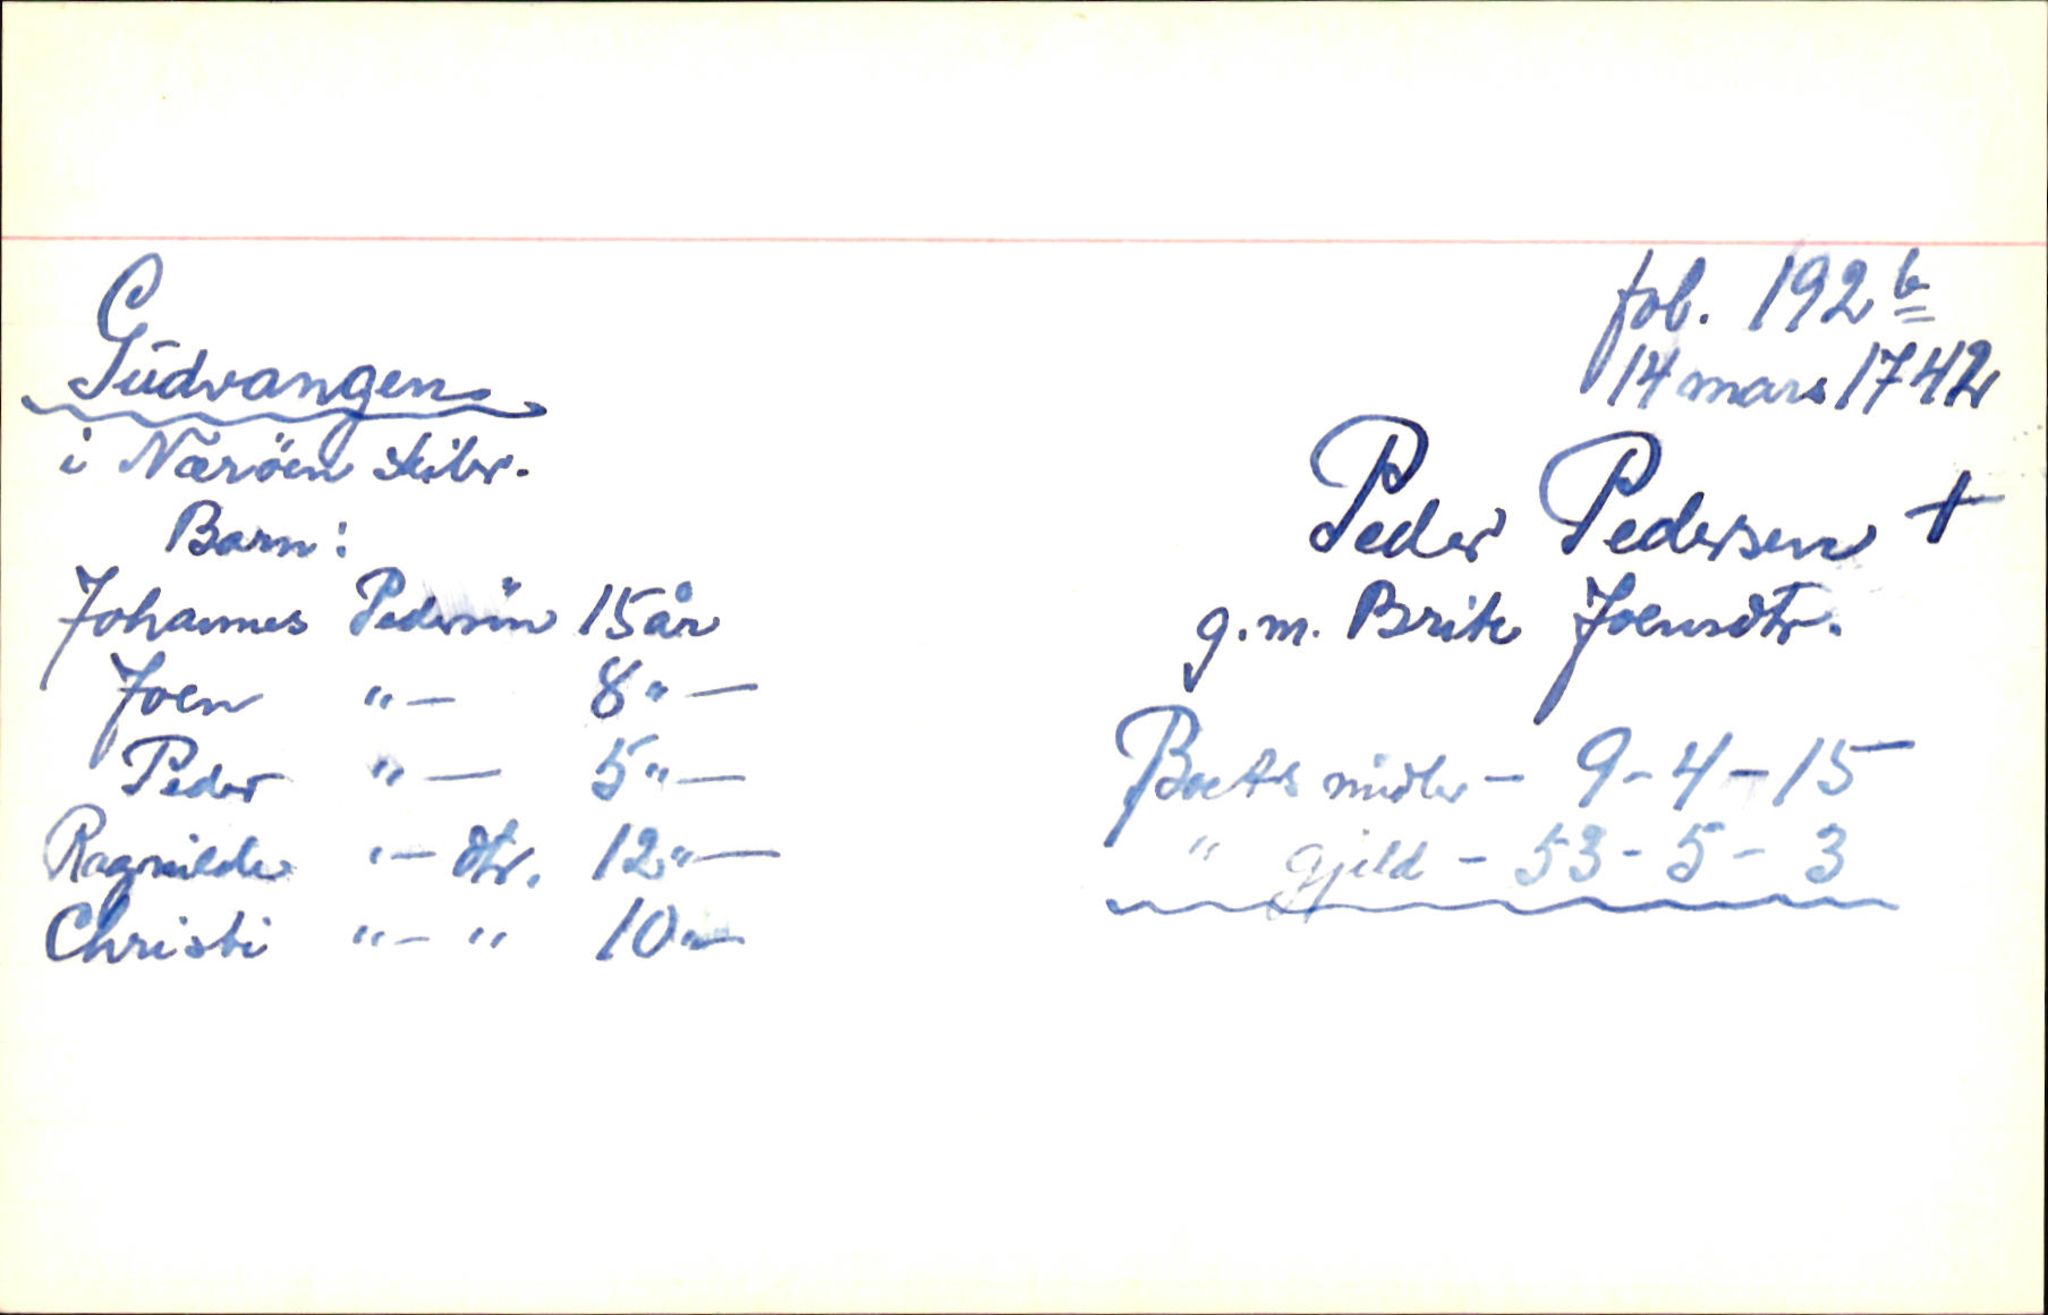 fol. 192 b
14 mars 1742
Gudvangen
i Nærøen skibr.
Peder Pedersen +
g.m. Brite Joensdtr.
Barn:
Johannes Pedersøn 15 år
Joen "— 8 " —
Peder "— 5 " —
Ragnilde "— dtr. 12 " —
Christi "— " 10 " —
Boets midler — 9 - 4 - 15
" gjeld - 53 - 5 - 3